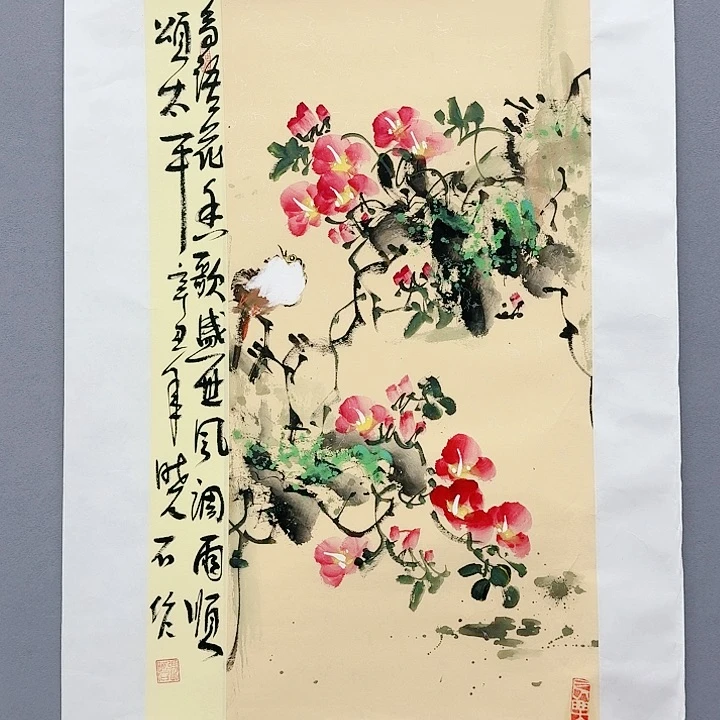 鸟语花香歌盛世风调雨顺
颂太平辛丑年晓石作